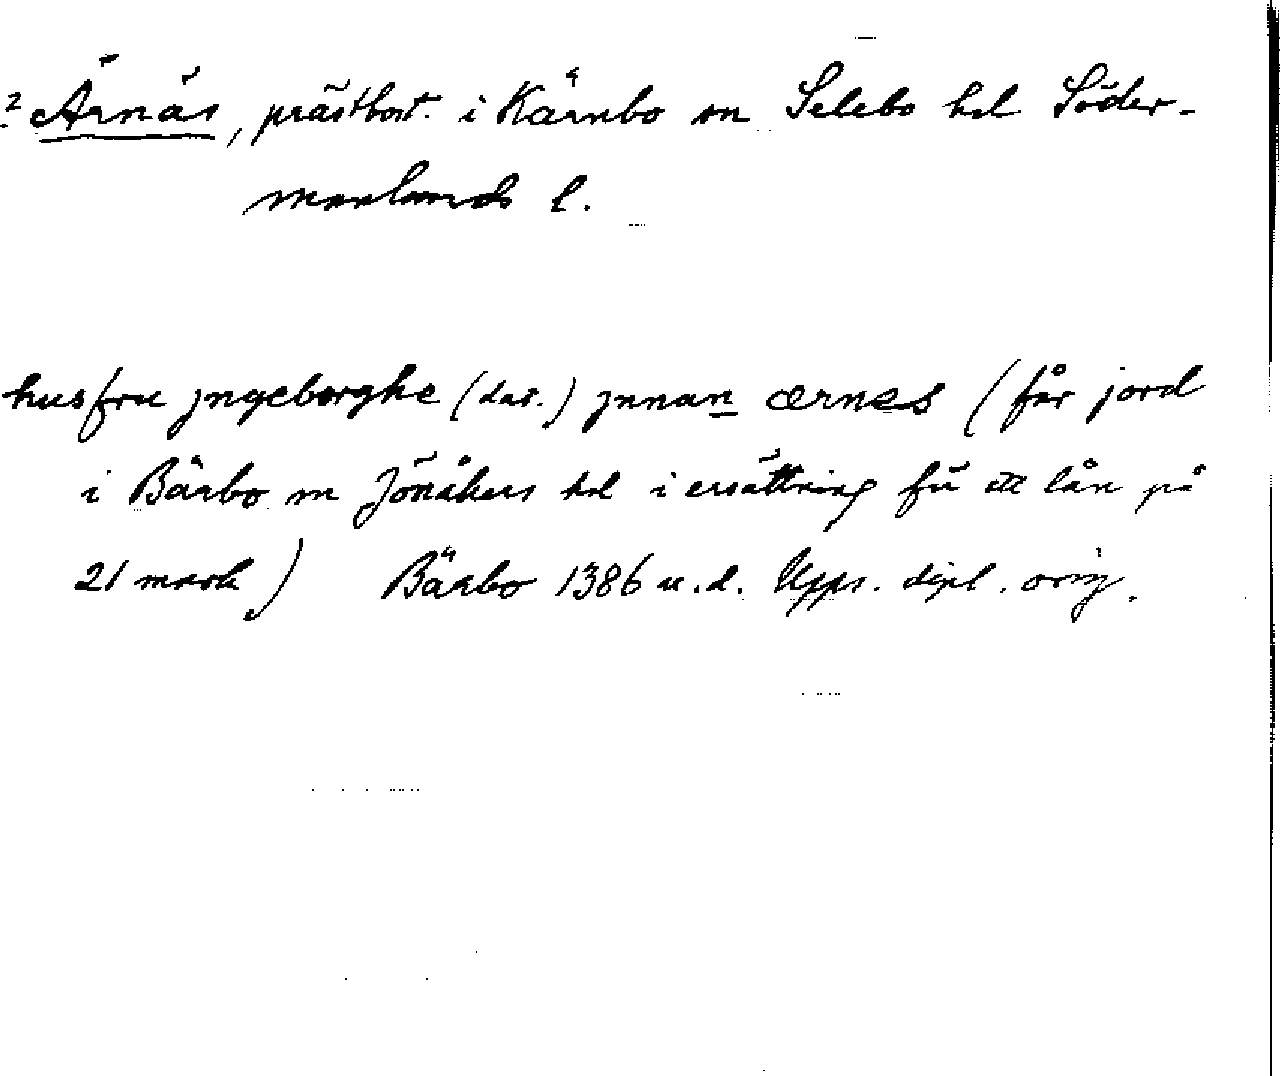 ? Ärnäs, prästbost. i Kärnbo sn Selebo hd Söder-
manlands l.
husfru jngeborghe (dat.) jnnan ærnes (får jord
i Bärbo sn Jönåkers hd i ersättning för ett lån på
21 mark) Bärbo 1386 u.d. Upps. dipl. orig.